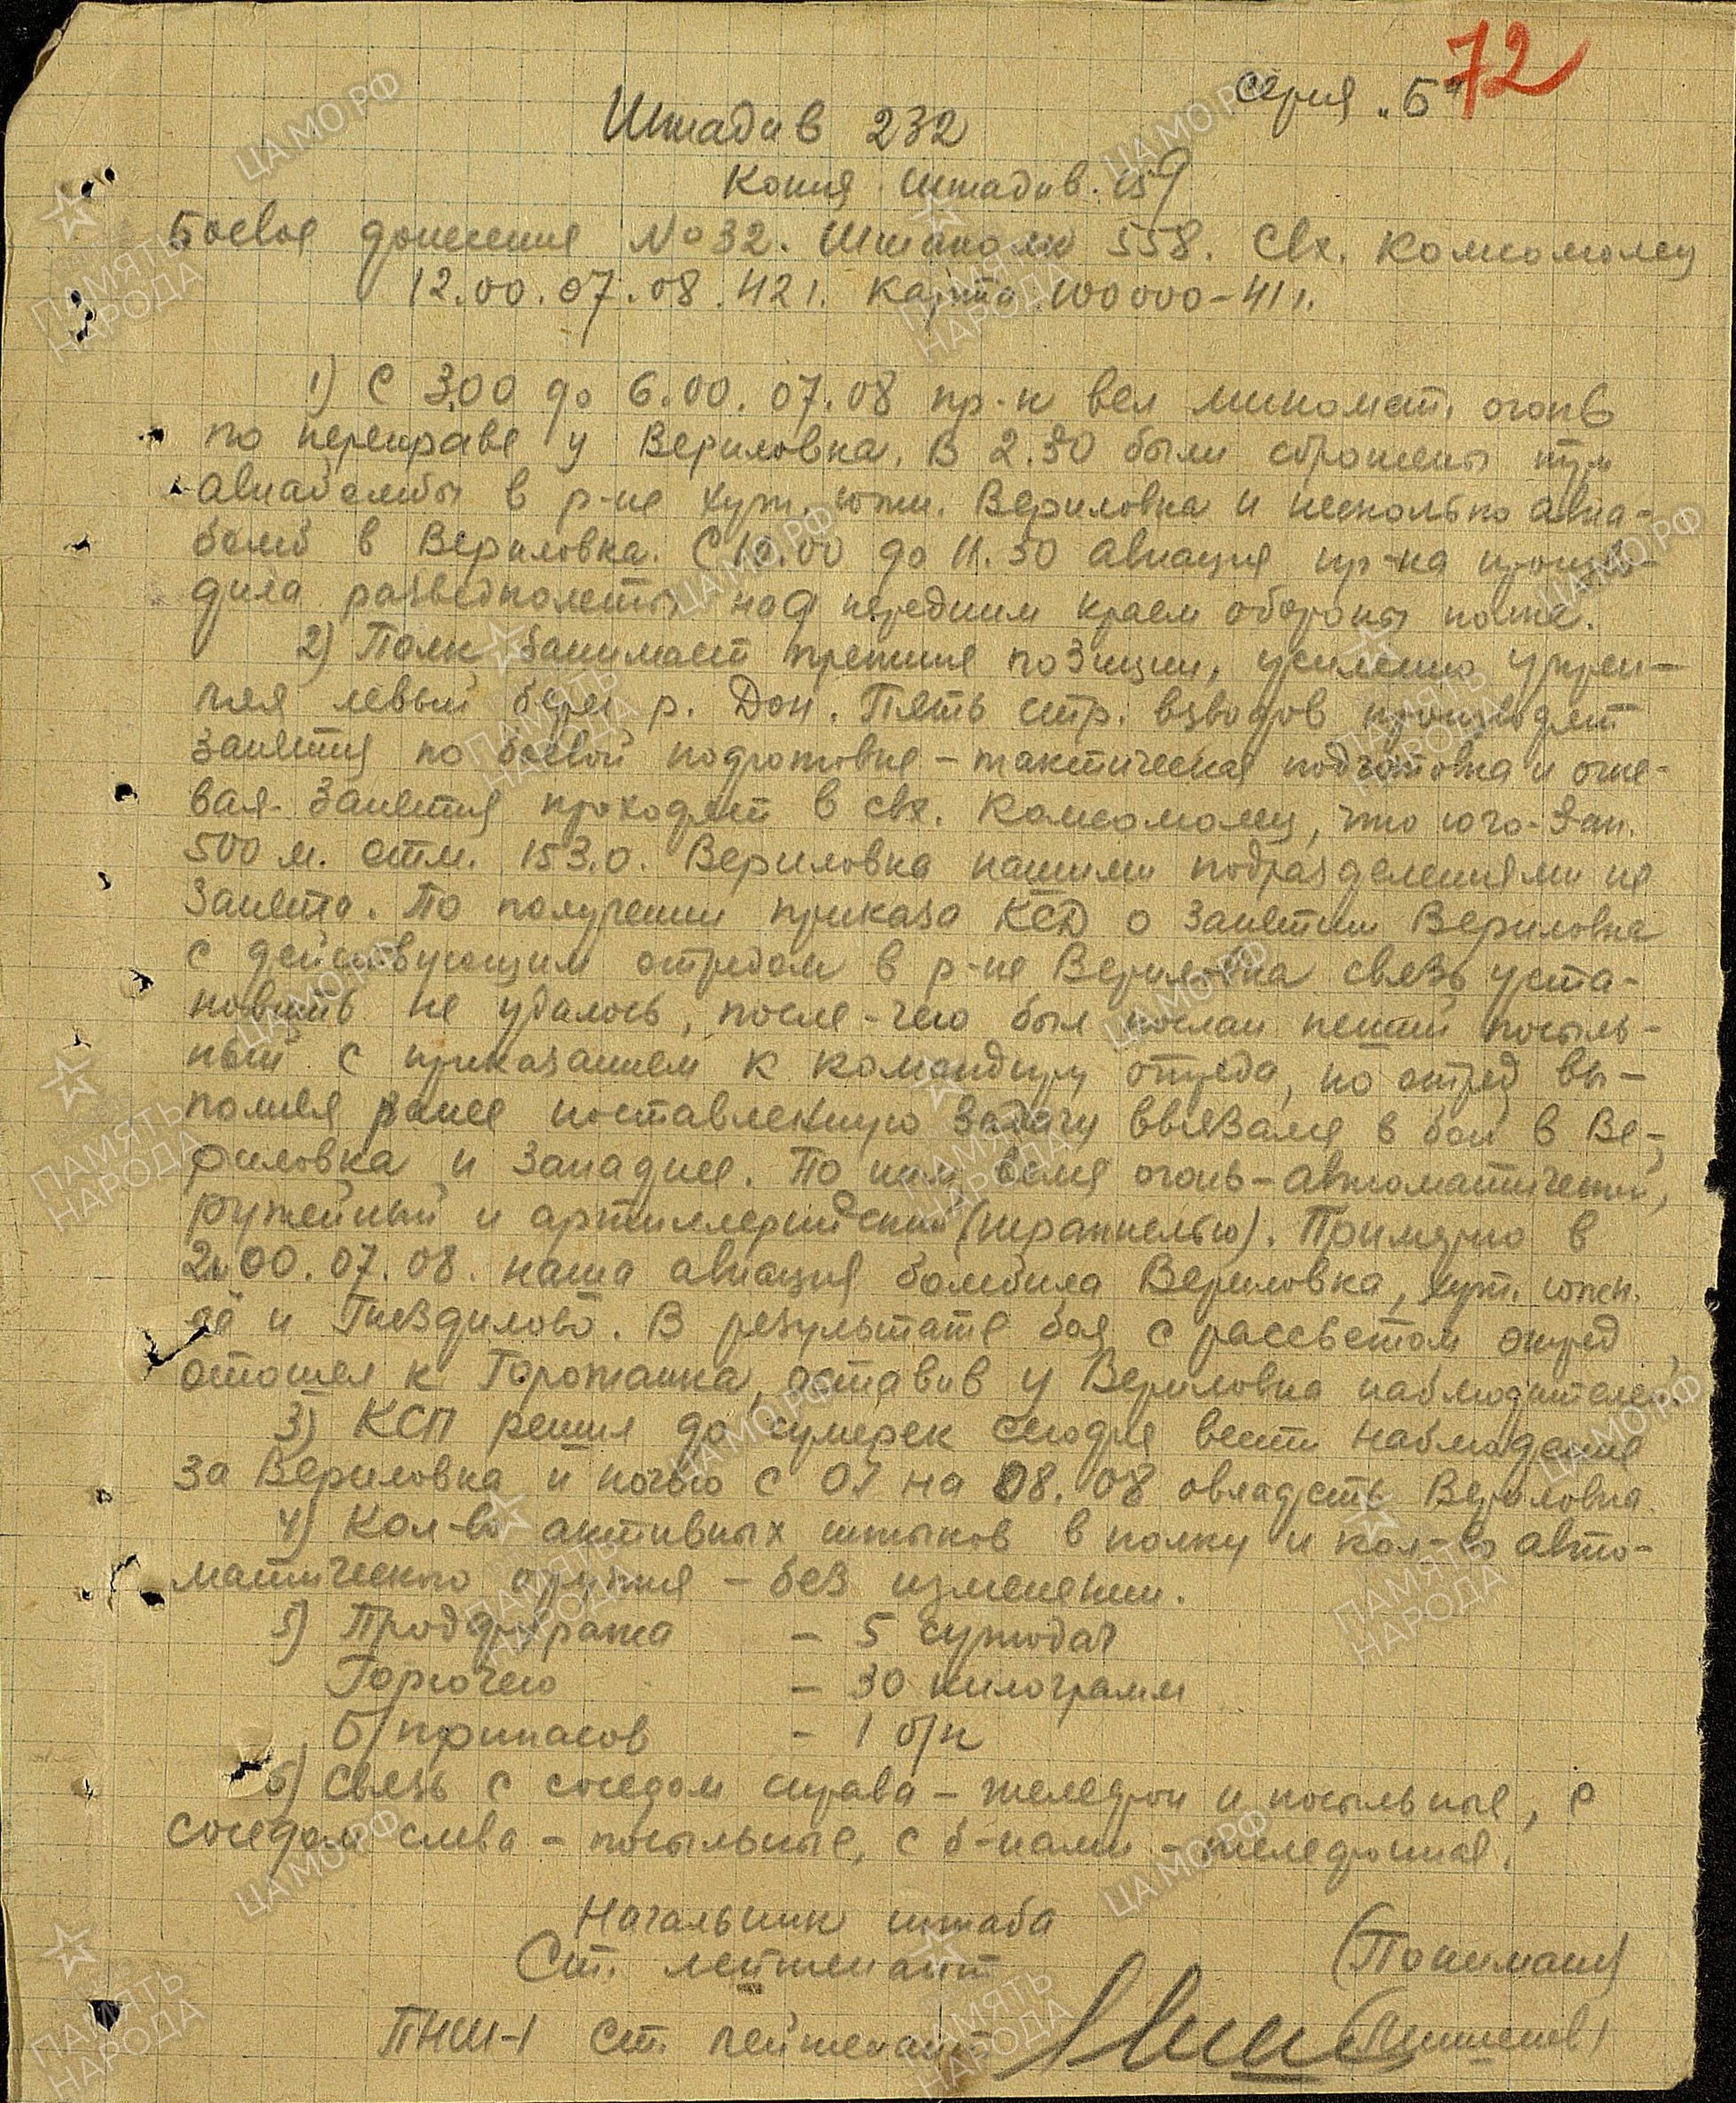 72
серия "Б"
Штадив 232
Копия штадив 159
Боевое донесение №32. Штаполк 558. Свх. Комсомолец
12.00.07.08.42 г. Карта 100000-41 г.
1) С 3.00 до 6.00. 07.08 пр-к вел миномет. огонь
по переправе у Вериловка. В 2.30 были сброшены три
авиабомбы в р-не хут. южн. Вериловка и несколько авиа-
бомб в Вериловка. С 10.00 до 11.30 авиация пр-ка произво-
дила разведполеты над передним краем обороны полка.
2) Полк занимает прежние позиции, усиленно укреп-
ляя левый берег р. Дон. Пять стр. взводов производят
занятия по боевой подготовке - тактическая подготовка и огне-
вая. Занятия проходят в свх. Комсомолец, что юго-зап.
500 м. отм. 153.0. Вериловка нашими подразделениями не
занята. По получении приказа КСД о занятии Вериловка
с действующим отрядом в р-не Вериловка связь уста-
новить не удалось, после-чего был послан пеший посыль-
ный с приказанием к командиру отряда, но отряд вы-
полняя ранее поставленную задачу ввязался в бой в Ве-
риловка и западнее. По ним велся огонь - автоматический,
ружейный и артиллерийский (шрапнелью). Примерно в
2.00. 07.08. наша авиация бомбила Вериловка, хут. южн.
её и Гнездилово. В результате боя с рассветом отряд
отошел к Горожанка, оставив у Вериловка наблюдателей.
3) КСП решил до сумерек сегодня вести наблюдение
за Вериловка и ночью с 07 на 08.08 овладеть Вериловка.
4) Кол-во активных штыков в полку и кол-во авто-
матического оружия - без изменений.
5) Продфуража - 5 сутодач
Горючего - 30 килограмм
Б/припасов - 1 б/к
6) Связь с соседом справа - телефон и посыльные, с
соседом слева - посыльные, с б-нами - телефонная.
Начальник штаба
Ст. лейтенант
ПНШ-1 Ст. лейтенант
ЦАМО.РФ
ПАМЯТЬ
НАРОДА